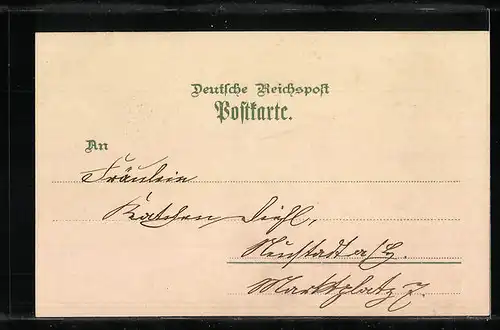 Deutsche Reichspost
Postkarte.
An
Fräulein
Kätchen Diehl,
Neustadt a/H.
Marktplatz 7.